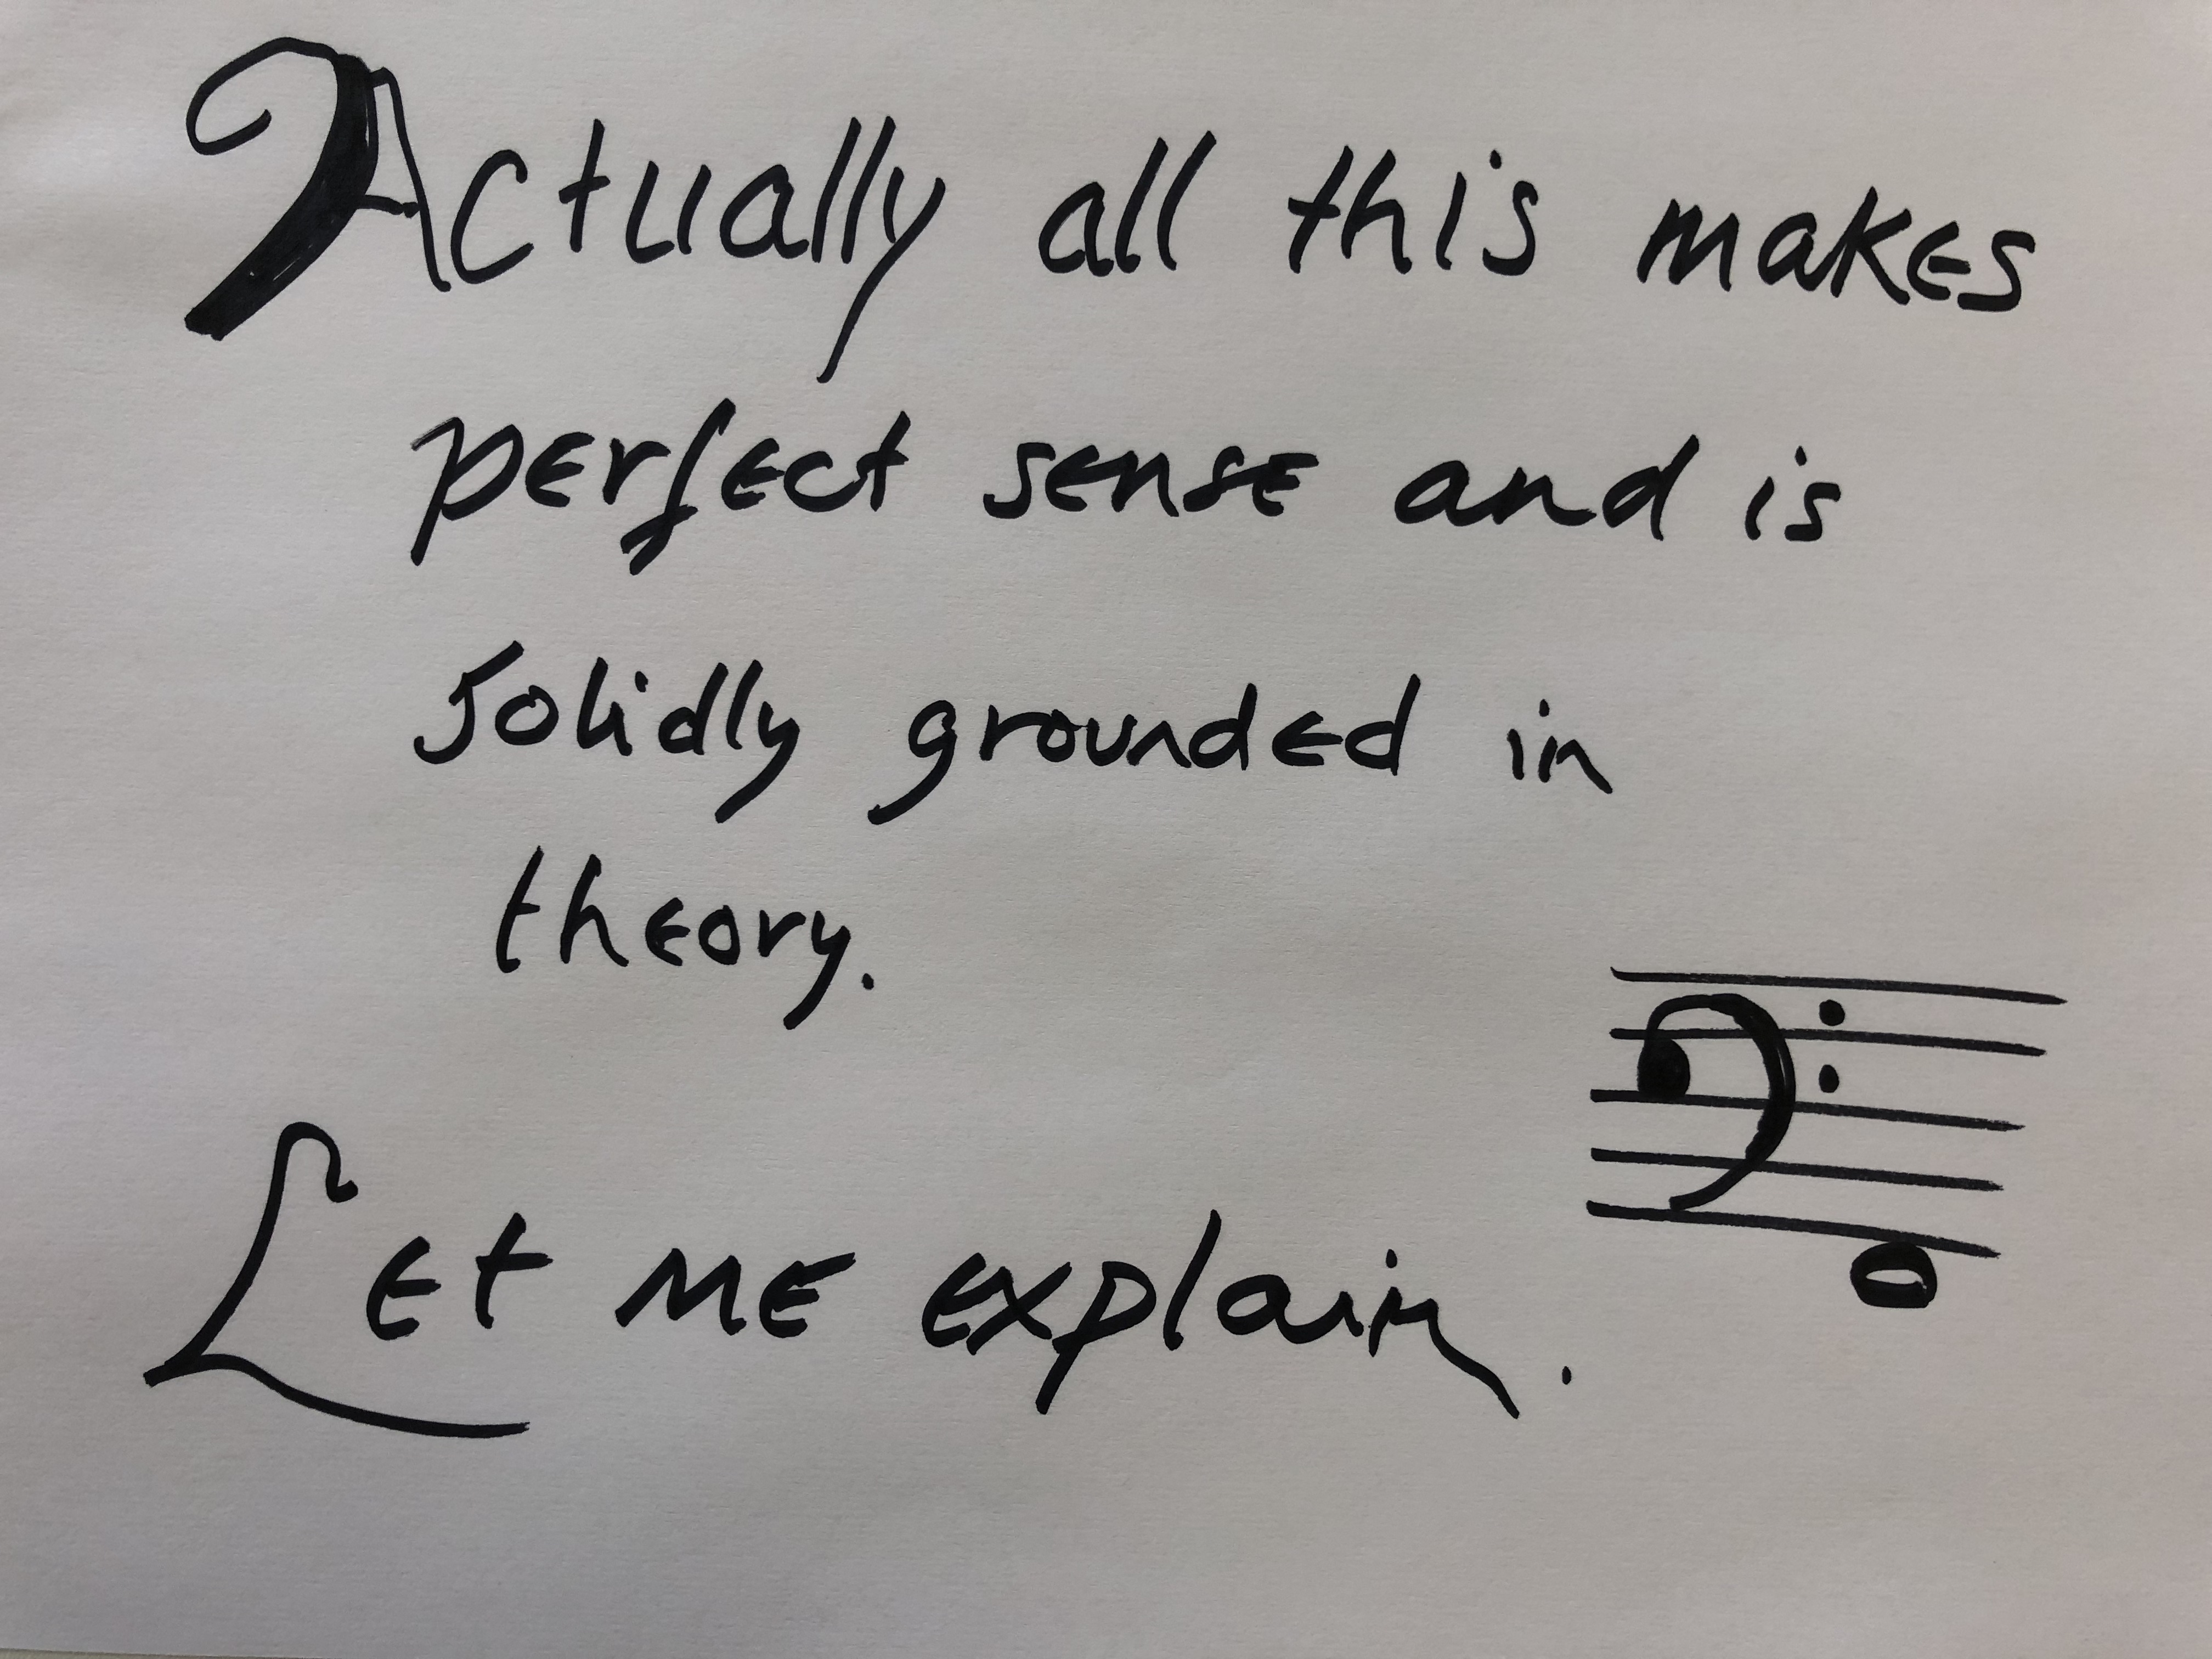 Actually all this makes
perfect sense and is
solidly grounded in
theory.
Let me explain.